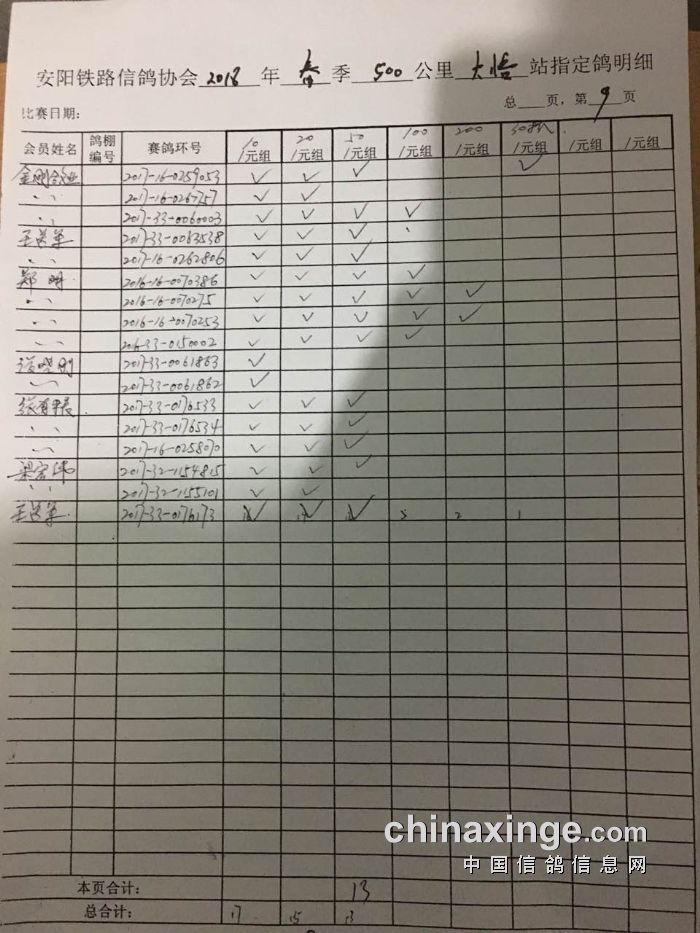 安阳铁路信鸽协会 2018 年 春 季 500 公里 大悟 站指定鸽明细
比赛日期： 总 页，第 9 页
会员姓名 鸽棚编号 赛鸽环号 10/元组 20/元组 50/元组 100/元组 200/元组 /元组 /元组 /元组
2017-16-0259053 ✓ ✓ ✓ ✓
〃 2017-16-0267757 ✓ ✓
〃 2017-33-0060003 ✓ ✓ ✓ ✓
2017-33-0063538 ✓ ✓ ✓
〃 2017-16-0262806 ✓ ✓ ✓
郑明 2016-16-0070386 ✓ ✓ ✓ ✓
〃 2016-16-0070275 ✓ ✓ ✓ ✓ ✓
〃 2016-16-0070253 ✓ ✓ ✓ ✓ ✓
〃 2016-33-0150002 ✓ ✓ ✓ ✓
张晓刚 2017-33-0061863 ✓
〃 2017-33-0061862 ✓
2017-33-0176533 ✓ ✓ ✓
〃 2017-33-0176534 ✓ ✓ ✓
〃 2017-16-0258070 ✓ ✓ ✓
梁宏伟 2017-32-1154815 ✓ ✓ ✓
〃 2017-32-1155101 ✓ ✓
2017-33-0176173 ✓ ✓ ✓ 5 2 1
本页合计： 13
总合计： 17 15 13
chinaxinge.com
中国信鸽信息网